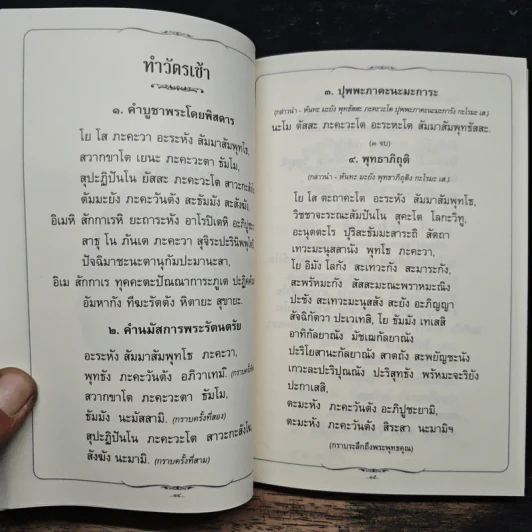 ทำวัตรเช้า
๑. คำบูชาพระโดยพิสดาร
โย โส ภะคะวา อะระหัง สัมมาสัมพุทโธ,
สวากขาโต เยนะ ภะคะวะตา ธัมโม,
สุปะฏิปันโน ยัสสะ ภะคะวะโต สาวะกะสังโฆ
ตัมมะยัง ภะคะวันตัง สะธัมมัง สะสังฆัง,
อิเมหิ สักกาเรหิ ยะถาระหัง อาโรปิเตหิ
สาธุ โน ภันเต ภะคะวา
ปัจฉิมาชะนะตานุกัมปะมานะสา,
อิเม สักกาเร ทุคคะตะปัณณาการะภูเต
อัมหากัง ทีฆะรัตตัง หิตายะ สุขายะ.
๒. คำนมัสการพระรัตนตรัย
อะระหัง สัมมาสัมพุทโธ ภะคะวา,
พุทธัง ภะคะวันตัง อภิวาเทมิ.
สวากขาโต ภะคะวะตา ธัมโม,
ธัมมัง นะมัสสามิ. (กราบครั้งที่สอง)
สุปะฏิปันโน ภะคะวะโต สาวะกะสังโฆ,
สังฆัง นะมามิ. (กราบครั้งที่สาม)
๓. ปุพพะภาคะนะมะการะ
(กล่าวนำ - หันทะ มะยัง พุทธัสสะ ภะคะวะโต ปุพพะภาคะนะมะการัง กะโรมะ เส)
นะโม ตัสสะ ภะคะวะโต อะระหะโต สัมมาสัมพุทธัสสะ.
(๓ จบ)
๔. พุทธาภิถุติ
(กล่าวนำ - หันทะ มะยัง พุทธาภิถุติง กะโรมะ เส)
โย โส ตะถาคะโต อะระหัง สัมมาสัมพุทโธ,
วิชชาจะระณะสัมปันโน สุคะโต โลกะวิทู,
อะนุตตะโร ปุริสะธัมมะสาระถิ สัตถา
เทวะมะนุสสานัง พุทโธ ภะคะวา,
โย อิมัง โลกัง สะเทวะกัง สะมาระกัง,
สะพรัหมะกัง สัสสะมะณะพราหมะณิง
ปะชัง สะเทวะมะนุสสัง สะยัง อะภิญญา
สัจฉิกัตวา ปะเวเทสิ, โย ธัมมัง เทเสสิ
อาทิกัลยาณัง มัชเฌกัลยาณัง
ปะริโยสานะกัลยาณัง สาตถัง สะพยัญชะนัง
เกวะละปะริปุณณัง ปะริสุทธัง พรัหมะจะริยัง
ปะกาเสสิ,
ตะมะหัง ภะคะวันตัง อะภิปูชะยามิ,
ตะมะหัง ภะคะวันตัง สิระสา นะมามิฯ
(กราบระลึกถึงพระพุทธคุณ)